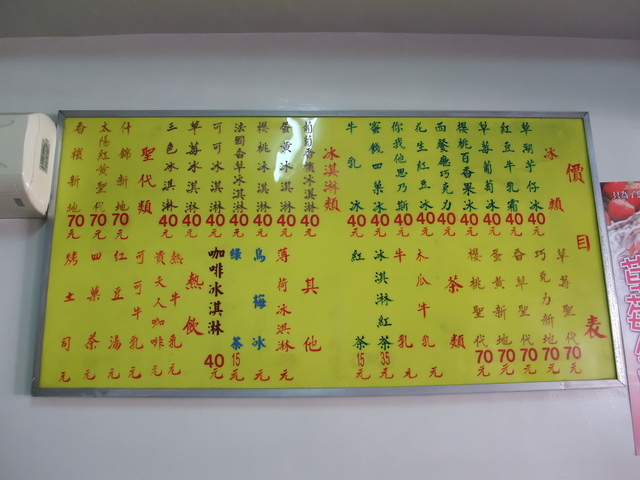 價目表
冰類
草湖芋仔冰 40元
紅豆牛乳霜 40元
草莓葡萄冰 40元
櫻桃百香果冰 40元
西餐廳巧克力 40元
花生紅豆冰 40元
你我他思乃斯 40元
蜜餞四菓冰 40元
牛乳冰 40元
冰淇淋類
葡萄香檳冰淇淋 40元
蛋黃冰淇淋 40元
櫻桃冰淇淋 40元
法國香草冰淇淋 40元
可可冰淇淋 40元
草莓冰淇淋 40元
三色冰淇淋 40元
聖代類
什錦新地 70元
太陽紅黃聖代 70元
香檳新地 70元
草莓聖代 70元
巧克力新地 70元
香草聖代 70元
蛋黃新地 70元
櫻桃聖代 70元
茶類
木瓜牛乳 元
牛乳 元
冰淇淋紅茶 35元
紅茶 15元
其他
薄荷冰淇淋 元
烏梅冰 元
綠茶 15元
咖啡冰淇淋 40元
熱飲
熱牛乳 元
貴夫人咖啡 元
可可牛乳 元
紅豆湯 元
四菓茶 元
烤土司 元